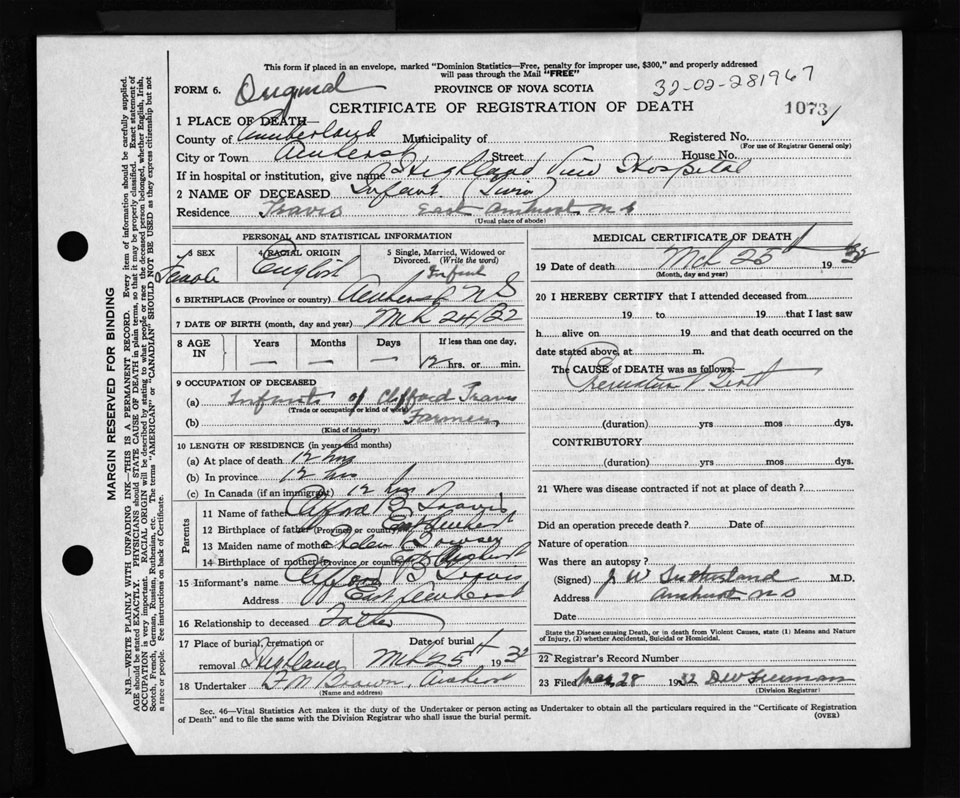 This form if placed in an envelope, marked "Dominion Statistics—Free, penalty for improper use, $300," and properly addressed
will pass through the Mail "FREE"
FORM 6. Original PROVINCE OF NOVA SCOTIA 32-02-281967
CERTIFICATE OF REGISTRATION OF DEATH 1073
1 PLACE OF DEATH—
County of Cumberland Municipality of Registered No.
(For use of Registrar General only)
City or Town Amherst Street House No.
If in hospital or institution, give name Highland View Hospital
2 NAME OF DECEASED Infant (Twin)
Residence Travis East Amherst N S
(Usual place of abode)
PERSONAL AND STATISTICAL INFORMATION
3 SEX Female
4 RACIAL ORIGIN English
5 Single, Married, Widowed or Divorced. (Write the word) Infant
6 BIRTHPLACE (Province or country) Amherst N S
7 DATE OF BIRTH (month, day and year) Mch 24/32
8 AGE IN Years Months Days If less than one day,
— — — 12 hrs. or min.
9 OCCUPATION OF DECEASED
(a) Infant of Clifford Travis
(Trade or occupation or kind of work)
(b) Farmer
(Kind of industry)
10 LENGTH OF RESIDENCE (in years and months)
(a) At place of death 12 hrs
(b) In province 12 hrs
(c) In Canada (if an immigrant) 12 hrs
Parents
11 Name of father Clifford B Travis
12 Birthplace of father (Province or country) East Amherst
13 Maiden name of mother Helen
14 Birthplace of mother (Province or country) Amherst
15 Informant's name Clifford B Travis
Address East Amherst
16 Relationship to deceased Father
17 Place of burial, cremation or removal Highland Date of burial Mch 25th 1932
18 Undertaker F N Brown, Amherst
(Name and address)
MEDICAL CERTIFICATE OF DEATH
19 Date of death Mch 25th 1932
(Month, day and year)
20 I HEREBY CERTIFY that I attended deceased from
19 to 19 that I last saw
h alive on 19 and that death occurred on the
date stated above, at m.
The CAUSE of DEATH was as follows:—
Premature Birth
(duration) yrs mos dys.
CONTRIBUTORY
(duration) yrs mos dys.
21 Where was disease contracted if not at place of death?
Did an operation precede death? Date of
Nature of operation
Was there an autopsy?
(Signed) J W Sutherland M.D.
Address Amherst N S
Date
State the Disease causing Death, or in death from Violent Causes, state (1) Means and Nature of Injury, (2) whether Accidental, Suicidal or Homicidal.
22 Registrar's Record Number
23 Filed Mar 28 1932
(Division Registrar)
Sec. 46—Vital Statistics Act makes it the duty of the Undertaker or person acting as Undertaker to obtain all the particulars required in the "Certificate of Registration
of Death" and to file the same with the Division Registrar who shall issue the burial permit. (OVER)
MARGIN RESERVED FOR BINDING
N.B.—WRITE PLAINLY WITH UNFADING INK—THIS IS A PERMANENT RECORD. Every item of information should be carefully supplied.
AGE should be stated EXACTLY. PHYSICIANS should STATE CAUSE OF DEATH in plain terms, so that it may be properly classified. Exact statement of
OCCUPATION is very important. RACIAL ORIGIN will be described by stating to what people or race the deceased person belonged, whether English, Irish,
Scotch, French, German, Russian, Ruthenian, etc. The terms "AMERICAN" or "CANADIAN" SHOULD NOT BE USED as they express citizenship but not
a race or people. See instructions on back of Certificate.